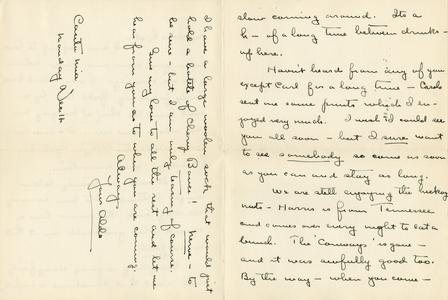 slow coming around. Its a
h— of a long time between drinks—
up here.
Havn't heard from any of you
except Carl for a long time — Carl
sent me some prints which I en-
joyed very much. I wish I could see
you all soon — but I sure want
to see somebody so come as soon
as you can and stay as long.
We are still enjoying the hickory
nuts — Harris is from Tennessee
and comes over every night to eat a
bunch. The "Conways" is gone —
and it was awfully good too.
By the way — when you come —
I have a large woolen sock that would just
hold a bottle of Cherry Bounce! — to
be sure — but I am only of course.
Give my love to all the rest and let me
hear from you as to when you are coming.
Always
Monday